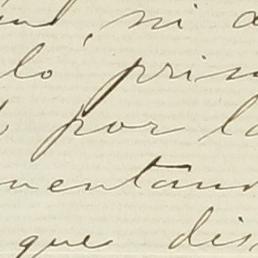 ni a
lo pris
por la
mentan
que dis